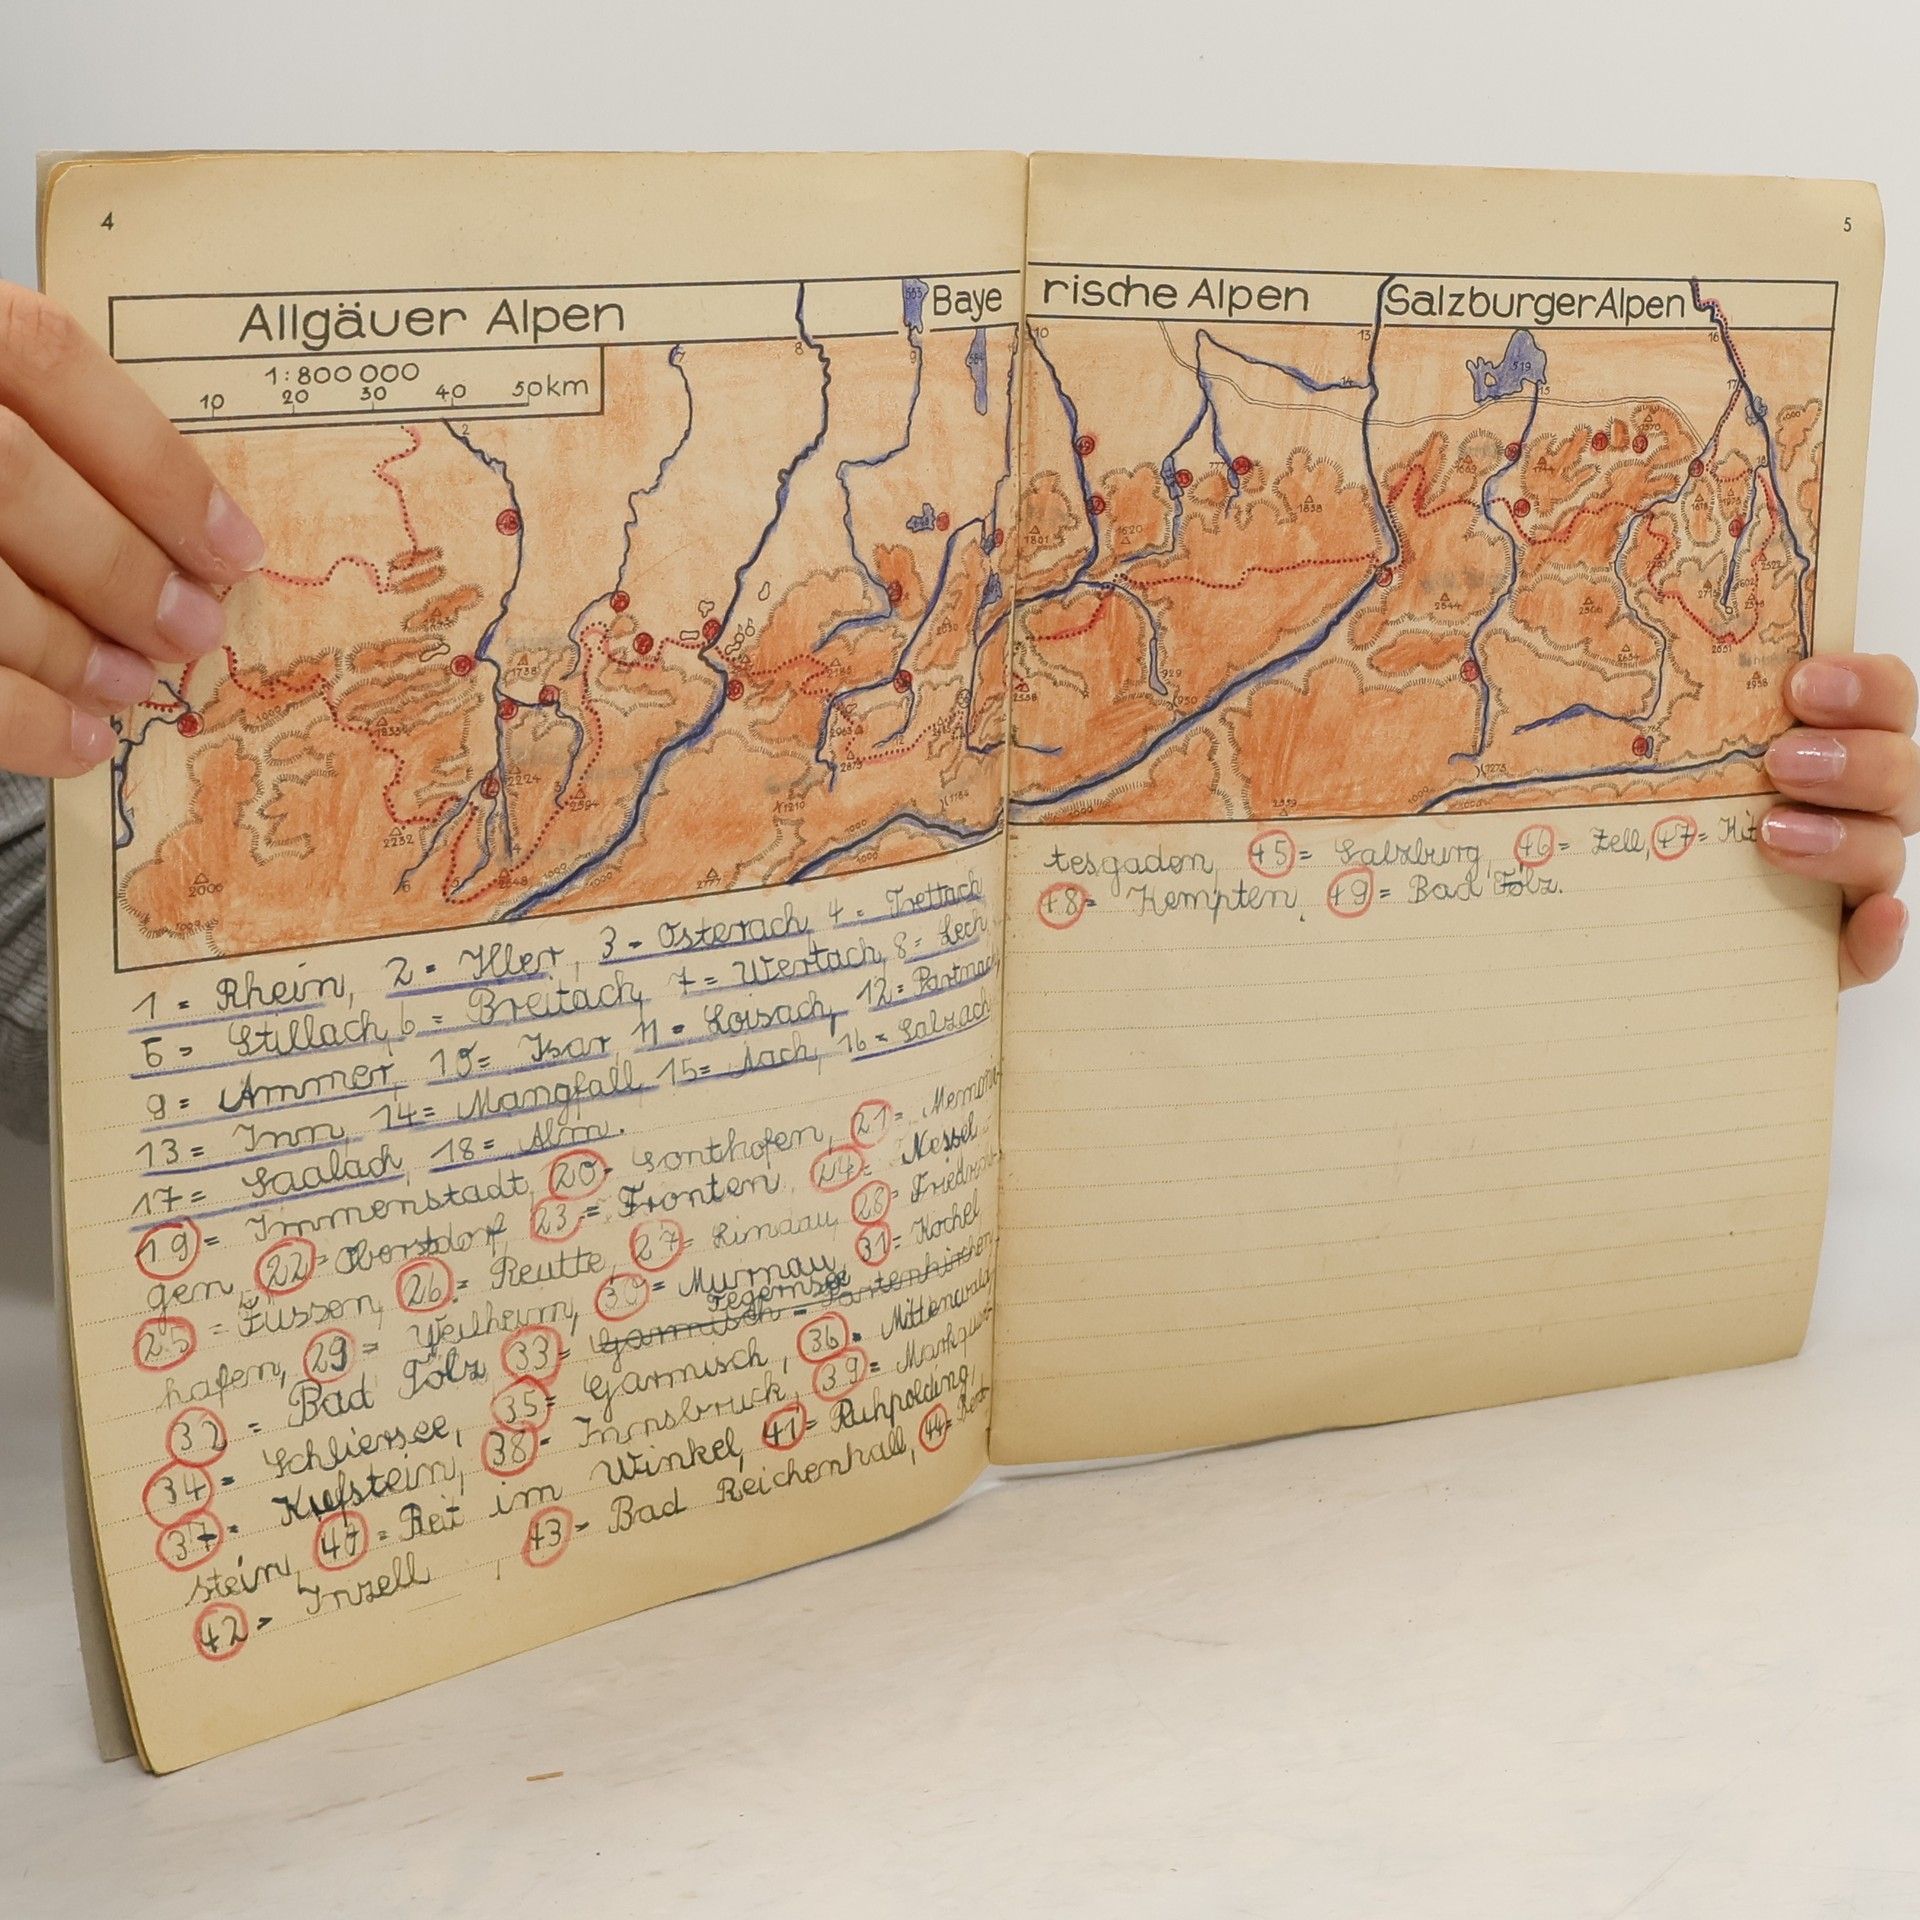 4
5
Allgäuer Alpen
Baye
rische Alpen
Salzburger Alpen
1:800 000
10 20 30 40 50km
1 = Rhein, 2 = Iller, 3 = Osterach, 4 = Trettach
5 = Stillach, 6 = Breitach, 7 = Wertach, 8 = Lech
9 = Ammer, 10 = Isar, 11 = Loisach, 12 = Partnach
13 = Inn, 14 = Mangfall, 15 = Aach, 16 = Salzach
17 = Saalach, 18 = Alm.
19 = Immenstadt, 20 = Sonthofen, 21 = Memmin-
gen, 22 = Oberstdorf, 23 = Fronten, 24 = Nessel-
25 = Füssen, 26 = Reutte, 27 = Lindau, 28 = Friedrichs
hafen, 29 = Weilheim, 30 = Murnau, 31 = Kochel,
32 = Bad Tölz, 33 = Garmisch - Partenkirchen Tegernsee
34 = Schliersee, 35 = Garmisch, 36 = Mittenwald
37 = Kufstein, 38 = Innsbruck, 39 = Markquart
stein, 40 = Reit im Winkel, 41 = Ruhpolding,
42 = Inzell, 43 = Bad Reichenhall, 44 = Berch
tesgaden, 45 = Salzburg, 46 = Zell, 47 = Kit
48 = Kempten, 49 = Bad Tölz.